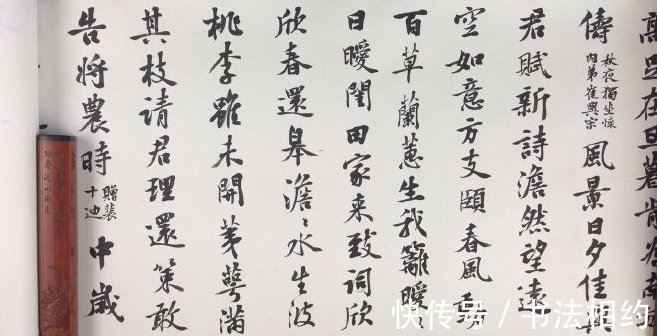 高足在旦暮肯為南
儔 秋夜獨坐懷
內弟崔興宗
風景日夕佳
君賦新詩澹然望遠
空如意方支頤春風動
百草蘭蕙生我籬曖
日暖閨田家來致詞欣
欣春還皋澹〻水生波
桃李雖未開荑萼滿
其枝請君理還策敢
告將農時 贈裴
十迪
中歲
快传号 / 书法相约